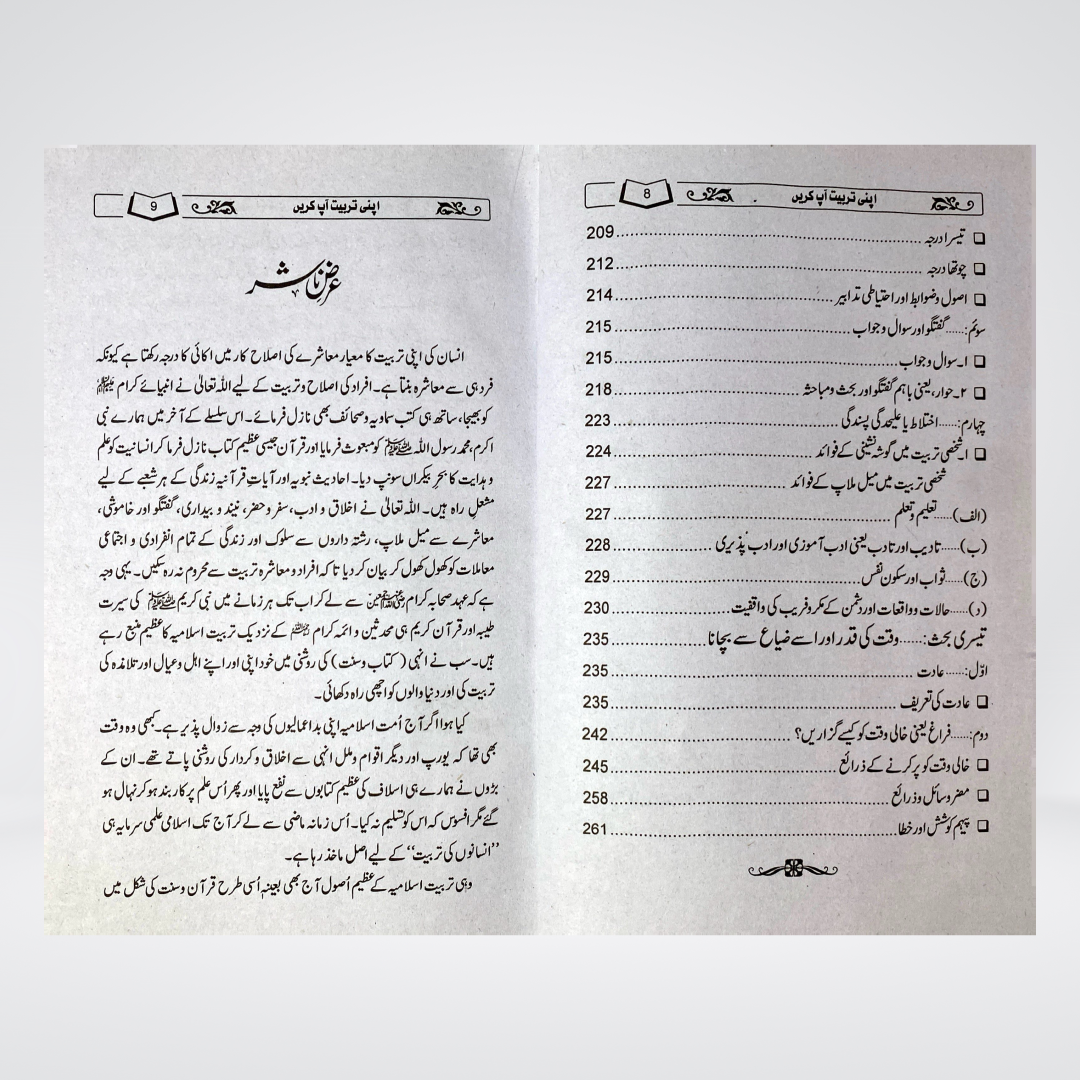 اپنی تربیت آپ کریں 8
❏ تیسرا درجہ ........ 209
❏ چوتھا درجہ ........ 212
❏ اصول وضوابط اور احتیاطی تدابیر ........ 214
سوئم:...... گفتگو اور سوال و جواب ........ 215
❏ ۱۔ سوال و جواب ........ 215
❏ ۲۔ حوار، یعنی باہم گفتگو اور بحث ومباحثہ ........ 218
چہارم:...... اختلاط یا علیحدگی پسندگی ........ 223
❏ ۱۔ شخصی تربیت میں گوشہ نشینی کے فوائد ........ 224
شخصی تربیت میں میل ملاپ کے فوائد ........ 227
(الف)...... تعلیم وتعلم ........ 227
(ب)...... تادیب اور تادب یعنی ادب آموزی اور ادب پذیری ........ 228
(ج)...... ثواب اور سکون نفس ........ 229
(د)...... حالات وواقعات اور دشمن کے مکر وفریب کی واقفیت ........ 230
تیسری بحث:...... وقت کی قدر اور اسے ضیاع سے بچانا ........ 235
اوّل:...... عادت ........ 235
❏ عادت کی تعریف ........ 235
دوم:...... فراغ یعنی خالی وقت کو کیسے گزاریں؟ ........ 242
❏ خالی وقت کو پر کرنے کے ذرائع ........ 245
❏ مضر وسائل وذرائع ........ 258
❏ پیہم کوشش اور خطا ........ 261
اپنی تربیت آپ کریں 9
عرض ناشر
انسان کی اپنی تربیت کا معیار معاشرے کی اصلاح کار میں اکائی کا درجہ رکھتا ہے کیونکہ
فرد ہی سے معاشرہ بنتا ہے۔ افراد کی اصلاح وتربیت کے لیے اللہ تعالیٰ نے انبیائے کرام
کو بھیجا، ساتھ ہی کتب سماویہ وصحائف بھی نازل فرمائے۔ اس سلسلے کے آخر میں ہمارے نبی
اکرم، محمد رسول اللہ ﷺ کو مبعوث فرمایا اور قرآن جیسی عظیم کتاب نازل فرما کر انسانیت کو علم
و ہدایت کا بحرِ بیکراں سونپ دیا۔ احادیث نبویہ اور آیاتِ قرآنیہ زندگی کے ہر شعبے کے لیے
مشعلِ راہ ہیں۔ اللہ تعالیٰ نے اخلاق و ادب، سفر و حضر، نیند و بیداری، گفتگو اور خاموشی،
معاشرے سے میل ملاپ، رشتہ داروں سے سلوک اور زندگی کے تمام انفرادی و اجتماعی
معاملات کو کھول کھول کر بیان کر دیا تا کہ افراد و معاشرہ تربیت سے محروم نہ رہ سکیں۔ یہی وجہ
ہے کہ عہد صحابہ کرام سے لے کر اب تک ہر زمانے میں نبی کریم ﷺ کی سیرت
طیبہ اور قرآن کریم ہی محدثین و ائمہ کرام کے نزدیک تربیت اسلامیہ کا عظیم منبع رہے
ہیں۔ سب نے انہی (کتاب وسنت) کی روشنی میں خود اپنی اور اپنے اہل وعیال اور تلامذہ کی
تربیت کی اور دنیا والوں کو اچھی راہ دکھائی۔
کیا ہوا اگر آج اُمت اسلامیہ اپنی بداعمالیوں کی وجہ سے زوال پذیر ہے۔ کبھی وہ وقت
بھی تھا کہ یورپ اور دیگر اقوام وملل انہی سے اخلاق و کردار کی روشنی پاتے تھے۔ ان کے
بڑوں نے ہمارے ہی اسلاف کی عظیم کتابوں سے نفع پایا اور پھر اُس علم پر کار بند ہو کر نہال ہو
گئے مگر افسوس کہ اس کو تسلیم نہ کیا۔ اُس زمانہ ماضی سے لے کر آج تک اسلامی علمی سرمایہ ہی
”انسانوں کی تربیت“ کے لیے اصل ماخذ رہا ہے۔
وہی تربیت اسلامیہ کے عظیم اُصول آج بھی بعینہٖ اُسی طرح قرآن وسنت کی شکل میں